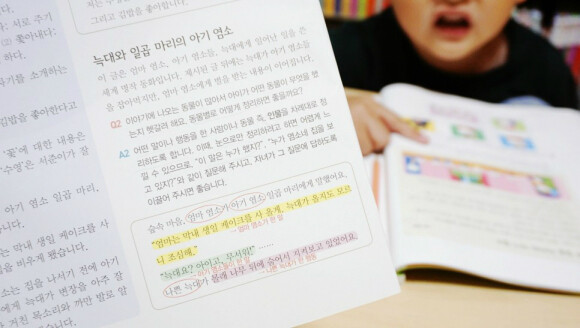 그리고 김밥을 좋아합니다.
늑대와 일곱 마리의 아기 염소
이 글은 엄마 염소, 아기 염소들, 늑대에게 일어난 일을 쓴
세계 명작 동화입니다. 제시된 글 뒤에는 늑대가 아기 염소들
을 잡아먹지만, 엄마 염소에게 벌을 받는 내용이 이어집니다.
Q2 이야기에 나오는 동물이 많아서 아이가 어떤 동물이 무엇을 했
는지 헷갈려 해요. 동물별로 어떻게 정리하면 좋을까요?
A2 어떤 일이나 행동을 한 사람이나 동물 즉, 인물을 차례대로 정
리하도록 합니다. 이때, 눈으로만 정리하려고 하면 어렵게 느
낄 수 있으므로, "이 일은 누가 했지?", "누가 염소네 집을 보
고 있지?"와 같이 질문해 주시고, 자녀가 그 질문에 답하도록
이끌어 주시면 좋습니다.
숲속 마을, 엄마 염소가 아기 염소 일곱 마리에게 말했어요.
"엄마는 막내 생일 케이크를 사 올게. 늑대가 올지도 모르
니 조심해."
엄마 염소가 한 말
"늑대요? 아이고, 무서워!" ......
아기 염소들이 한 말
나쁜 늑대가 몰래 나무 뒤에 숨어서 지켜보고 있었어요.
나쁜 늑대가 한 행동
는: 서로 주기
꽃아내다:
기를 소개하는
김밥을 좋아한다고
'꽃'에 대한 내용은
'수영'은 서준이가 잘
아기 염소 일곱 마리,
막내 생일 케이크를
을 비우게 됐습니다.
소는 집을 나서기 전에 아기
에게 늑대가 변장을 아주 잘
거친 목소리와 까만 발로 알